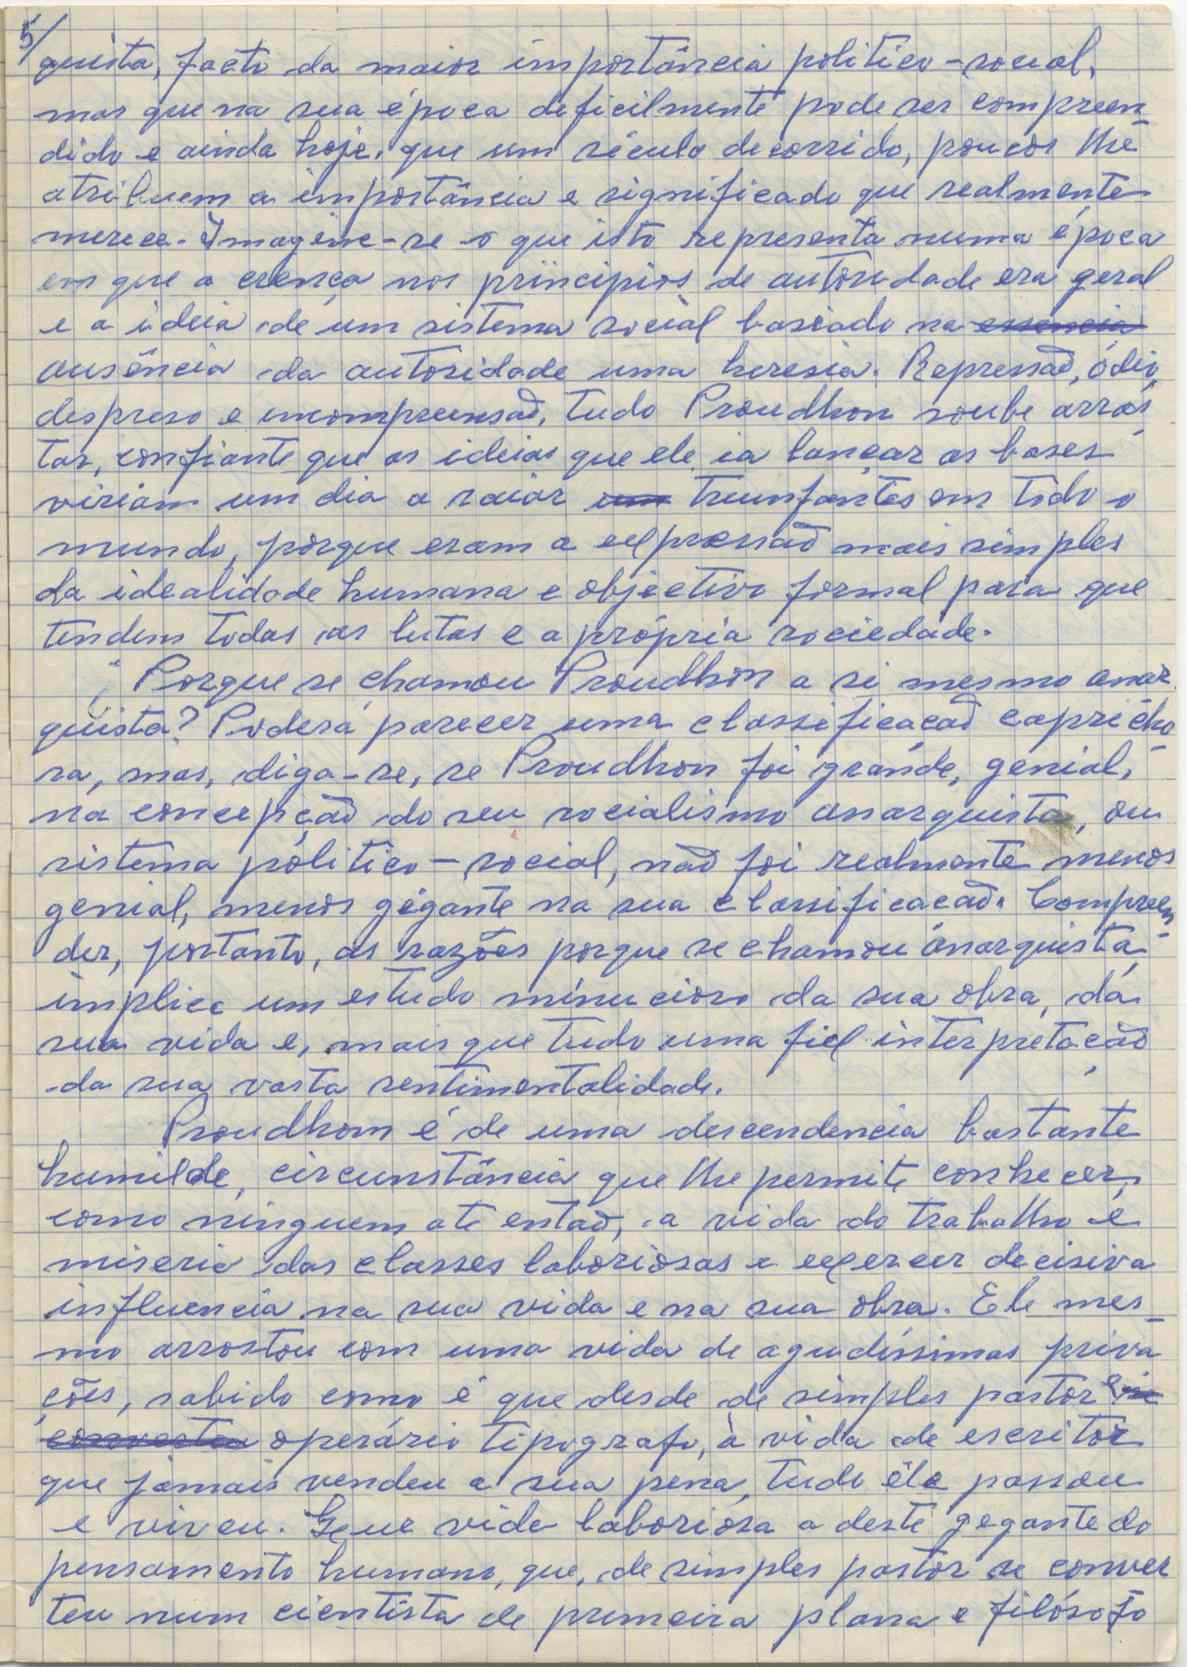 5/
quista, facto da maior importância politico-social,
mas que na sua época deficilmente pode ser compreen-
dido e ainda hoje, que um século decorrido, poucos lhe
atribuem a importância e significado que realmente
merece. Imagine-se o que isto representa numa época
em que a crença nos principios de autoridade era geral
e a ideia de um sistema social baseado na essencia
ausência da autoridade uma heresia. Repressão, ódio,
despreso e incompreensão, tudo Proudhon soube arros-
tar, confiante que as ideias que ele ia lançar as bases
viriam um dia a raiar um triunfantes em todo o
mundo, porque eram a expressão mais simples
da idealidade humana e objectivo formal para que
tendem todas as lutas e a própria sociedade.
Porque se chamou Proudhon a si mesmo anar-
quista? Poderá parecer uma classificação capricho-
sa, mas, diga-se, se Proudhon foi grande, genial,
na concepção do seu socialismo anarquista, ou
sistema politico-social, não foi realmente menos
genial, menos gigante na sua classificação. Compreen-
der, portanto, as razões porque se chamou anarquista
implica um estudo minucioso da sua obra, da
sua vida e, mais que tudo uma fiel interpretação
da sua vasta sentimentalidade.
Proudhom é de uma descendencia bastante
humilde, circunstância que lhe permite conhecer,
como ninguem até então, a vida do trabalho e
miseria das classes laboriosas e exercer decisiva
influencia na sua vida e na sua obra. Ele mes-
mo arrostou com uma vida de agudíssimas priva-
ções, sabido como é que desde de simples pastor e se
converteu operário tipografo, à vida de escritor
que jamais vendeu a sua pena, tudo êle passou
e viveu. Que vida laboriosa a deste gigante do
pensamento humano, que, de simples pastor se conver
teu num cientista de primeira plana e filósofo